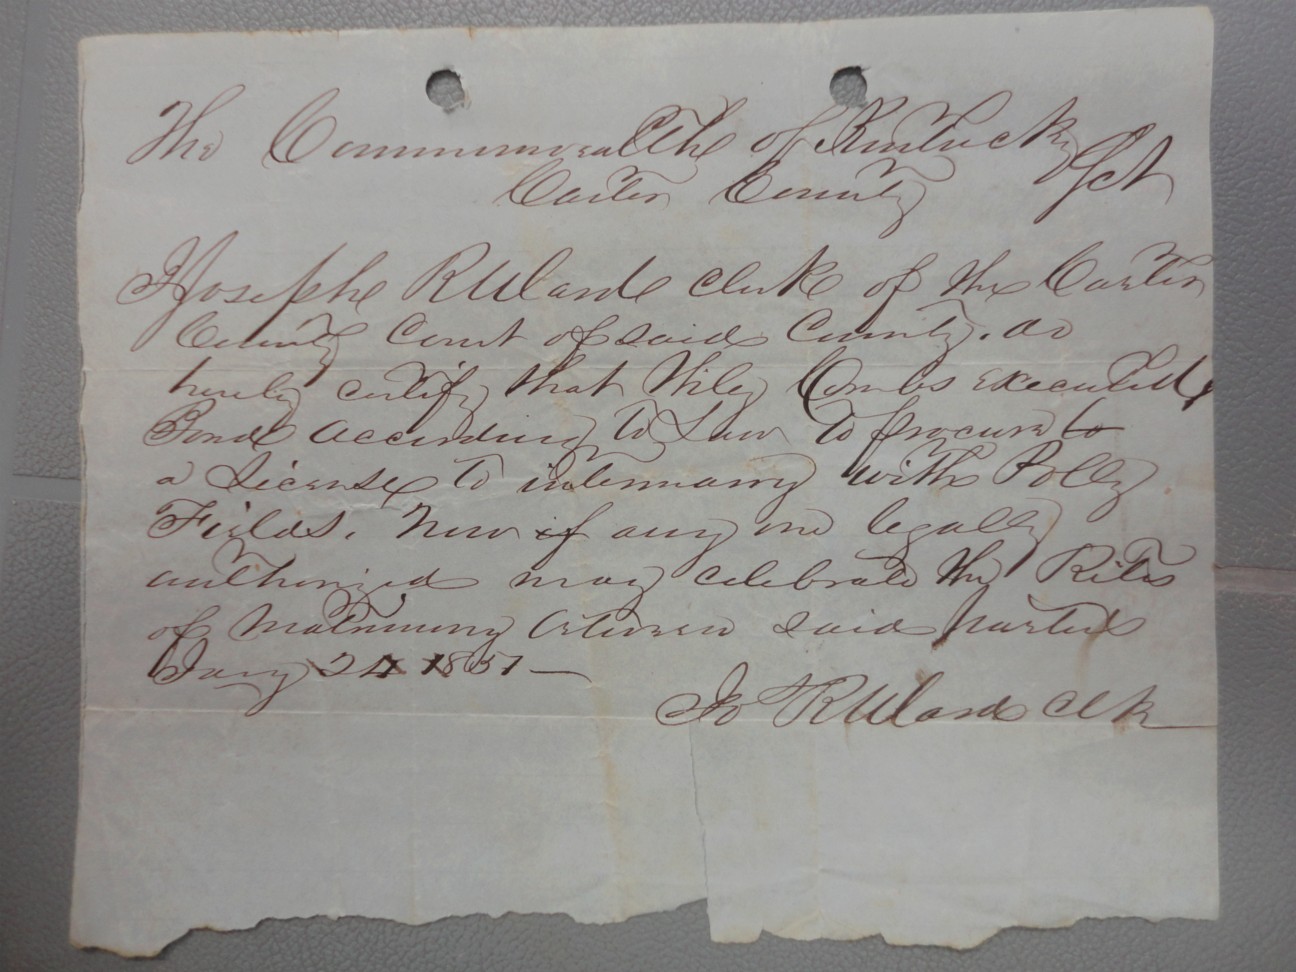 The Commonwealth of Kentucky
Carter County Sct
I Joseph R Ward Clerk of the Carter
County Court of said County. do
hereby certify that Wiley Combs executed
Bond according to Law to procure to
a License to intermarry with Polly
Fields. Now if any one legally
authorized may celebrate the Rites
of Matrimony between said parties
Jany 24 1851
Jo R Ward Clk